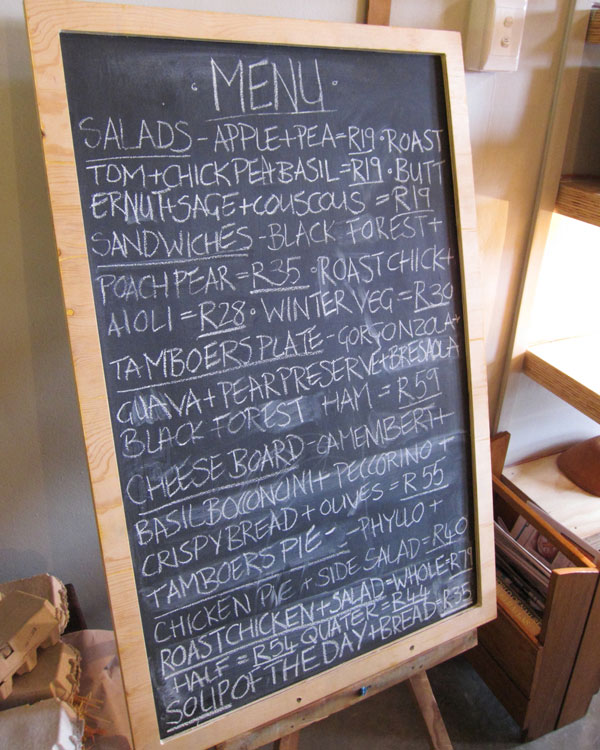 · MENU ·
SALADS - APPLE+PEA=R19 · ROAST
TOM+CHICKPEA+BASIL=R19 · BUTT
ERNUT+SAGE+COUSCOUS = R19
SANDWICHES - BLACK FOREST+
POACH PEAR = R35 · ROAST CHICK+
AIOLI = R28 · WINTER VEG = R30
TAMBOERSPLATE - GORGONZOLA+
GUAVA+PEAR PRESERVE+BRESAOLA
BLACK FOREST HAM = R59
CHEESE BOARD - CAMEMBERT+
BASIL BOCONCINI + PECCORINO +
CRISPY BREAD + OLIVES = R55
TAMBOERS PIE - PHYLLO +
CHICKEN PIE + SIDE SALAD = R40
ROAST CHICKEN + SALAD = WHOLE = R79
HALF = R54 QUATER = R44
SOUP OF THE DAY + BREAD = R35